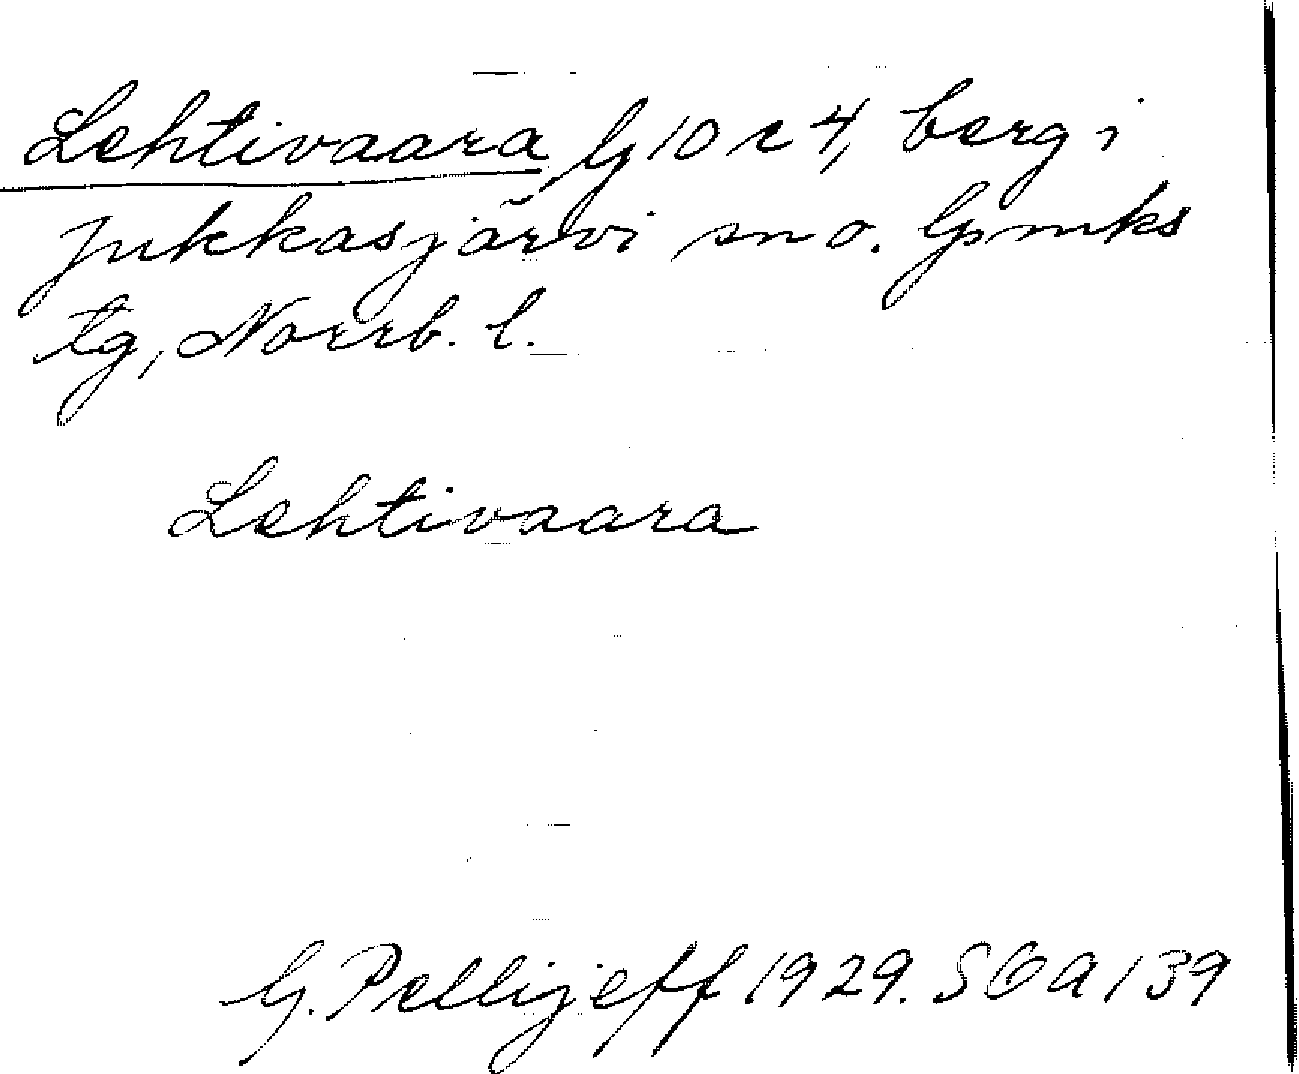 Lehtivaara G 10 c 4, berg i
Jukkasjärvi sn o. Gmks
tg, Norrb. l.
Lehtivaara
G. Pellijeff 1929. SOA 139